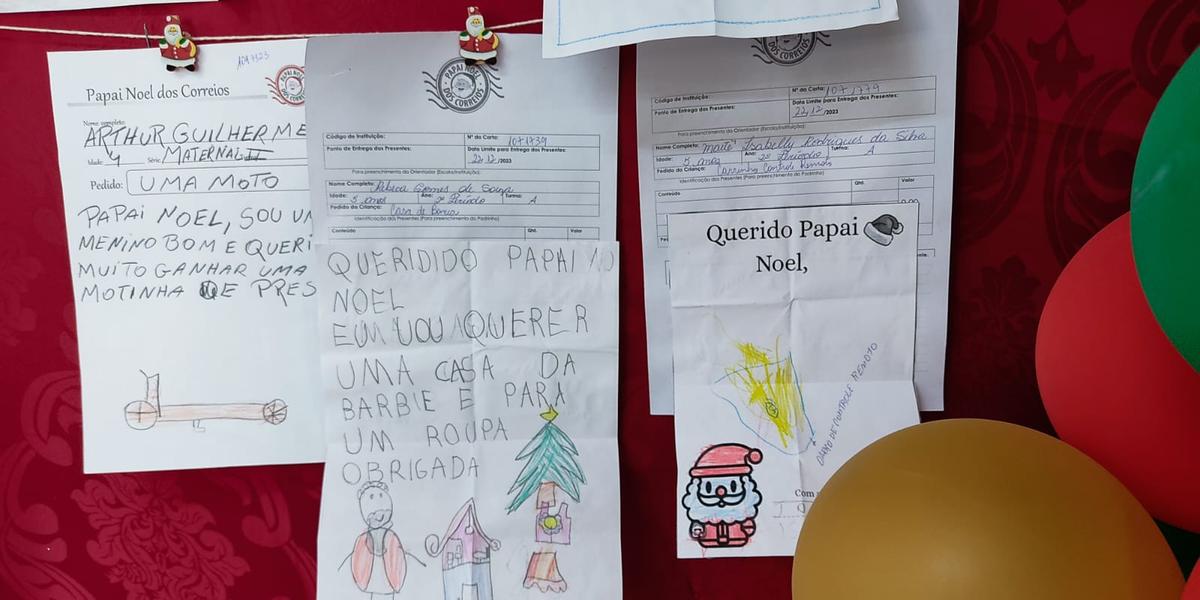 Papai Noel dos Correios
Nome completo:
ARTHUR GUILHERME
Idade: 4 Série: MATERNAL II
Pedido: UMA MOTO
PAPAI NOEL, SOU UM
MENINO BOM E QUERI
MUITO GANHAR UMA
MOTINHA DE PRES
PAPAI NOEL
DOS CORREIOS
Código de Instituição: Nº da Carta: 1071739
Ponto de Entrega dos Presentes: Data Limite para Entrega dos Presentes:
22/12/2023
Para preenchimento do Orientador (Escola/Instituição):
Nome Completo: Gomes de Souza
Idade: 5 anos Ano: 2º Período Turma: A
Pedido da Criança: Casa de boneca
Identificação dos Presentes (Para preenchimento do Padrinho)
Conteúdo Qnt. Valor
QUERIDIDO PAPAI NO
NOEL
EUM VOU QUERER
UMA CASA DA
BARBIE E PARA
UM ROUPA
OBRIGADA
DOS CORREIOS
Código de Instituição: Nº da Carta: 1071779
Ponto de Entrega dos Presentes: Data Limite para Entrega dos Presentes:
22/12/2023
Para preenchimento do Orientador (Escola/Instituição):
Nome Completo: Maitê Isabelly Rodrigues da Silva
Idade: 5 anos Ano: 2º Período Turma: A
Pedido da Criança: Carrinho Controle Remoto
Identificação dos Presentes (Para preenchimento do Padrinho)
Conteúdo Qnt. Valor
Querido Papai
Noel,
CARRO DE CONTROLE REMOTO
Com